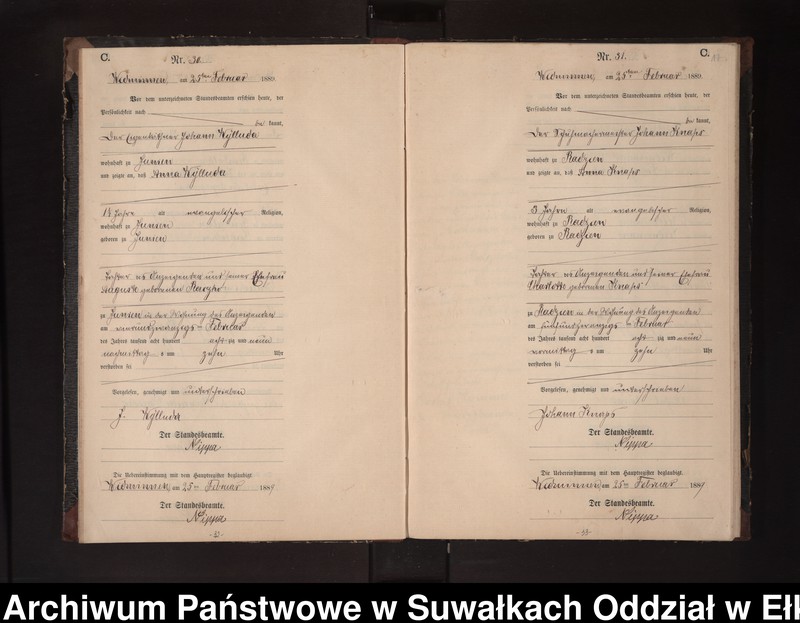 C.
Nr. 30.
Widminnen, am 25ten Februar 1889.
Vor dem unterzeichneten Standesbeamten erschien heute, der
Persönlichkeit nach
be kannt,
Der Eigenkäthner Johann
wohnhaft zu Junien
und zeigte an, daß Anna
1½ Jahre alt evangelischer Religion,
wohnhaft zu Junien
geboren zu Junien
Tochter des Anzeigenden und seiner Ehefrau
Auguste geborenen
zu Junien in der Wohnung des Anzeigenden
am Februar
des Jahres tausend acht hundert acht zig und neun
nachmittag s um zehn Uhr
verstorben sei
Vorgelesen, genehmigt und unterschrieben
J.
Der Standesbeamte.
Nippa
Die Uebereinstimmung mit dem Hauptregister beglaubigt.
Widminnen, am 25ten Februar 1889
Der Standesbeamte.
Nippa
C.
Nr. 31.
Widminnen, am 25ten Februar 1889.
Vor dem unterzeichneten Standesbeamten erschien heute, der
Persönlichkeit nach
be kannt,
Der Schuhmachermeister Johann Knaps
wohnhaft zu Radzien
und zeigte an, daß Anna Knaps
3 Jahre alt evangelischer Religion,
wohnhaft zu Radzien
geboren zu Radzien
Tochter des Anzeigenden und seiner Ehefrau
Charlotte geborenen Knaps
zu Radzien in der Wohnung des Anzeigenden
am Februar
des Jahres tausend acht hundert acht zig und neun
vormittag s um zehn Uhr
verstorben sei
Vorgelesen, genehmigt und unterschrieben
Johann Knaps
Der Standesbeamte.
Nippa
Die Uebereinstimmung mit dem Hauptregister beglaubigt.
Widminnen, am 25ten Februar 1889
Der Standesbeamte.
Nippa
Archiwum Państwowe w Suwałkach Oddział w Ełk